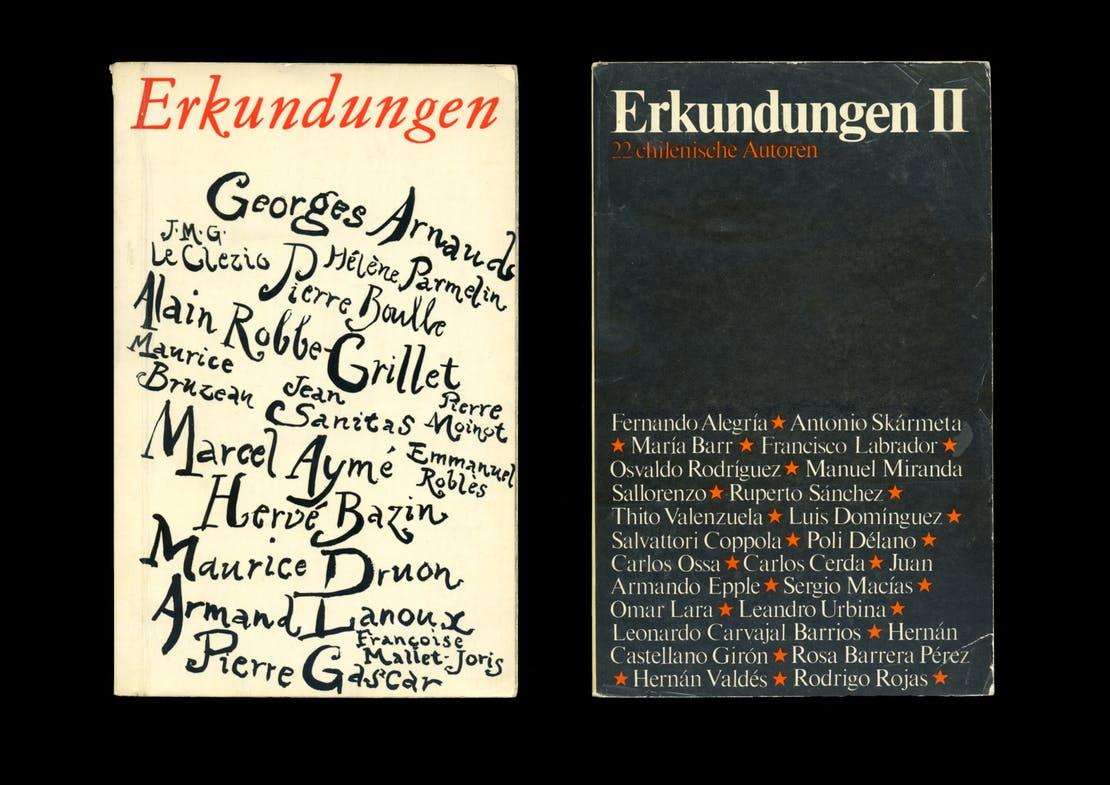 Erkundungen
Georges Arnaud
J.M.G.
Le Clezio
Hélène Parmelin
Pierre Boulle
Alain Robbe-Grillet
Maurice
Bruzeau
Jean
Sanitas
Pierre
Moinot
Marcel Aymé
Emmanuel
Roblès
Hervé Bazin
Maurice Druon
Armand Lanoux
Françoise
Mallet-Joris
Pierre Gascar
Erkundungen II
22 chilenische Autoren
Fernando Alegría ★ Antonio Skármeta
★ María Barr ★ Francisco Labrador ★
Osvaldo Rodríguez ★ Manuel Miranda
Sallorenzo ★ Ruperto Sánchez ★
Thito Valenzuela ★ Luis Domínguez ★
Salvattori Coppola ★ Poli Délano ★
Carlos Ossa ★ Carlos Cerda ★ Juan
Armando Epple ★ Sergio Macías ★
Omar Lara ★ Leandro Urbina ★
Leonardo Carvajal Barrios ★ Hernán
Castellano Girón ★ Rosa Barrera Pérez
★ Hernán Valdés ★ Rodrigo Rojas ★